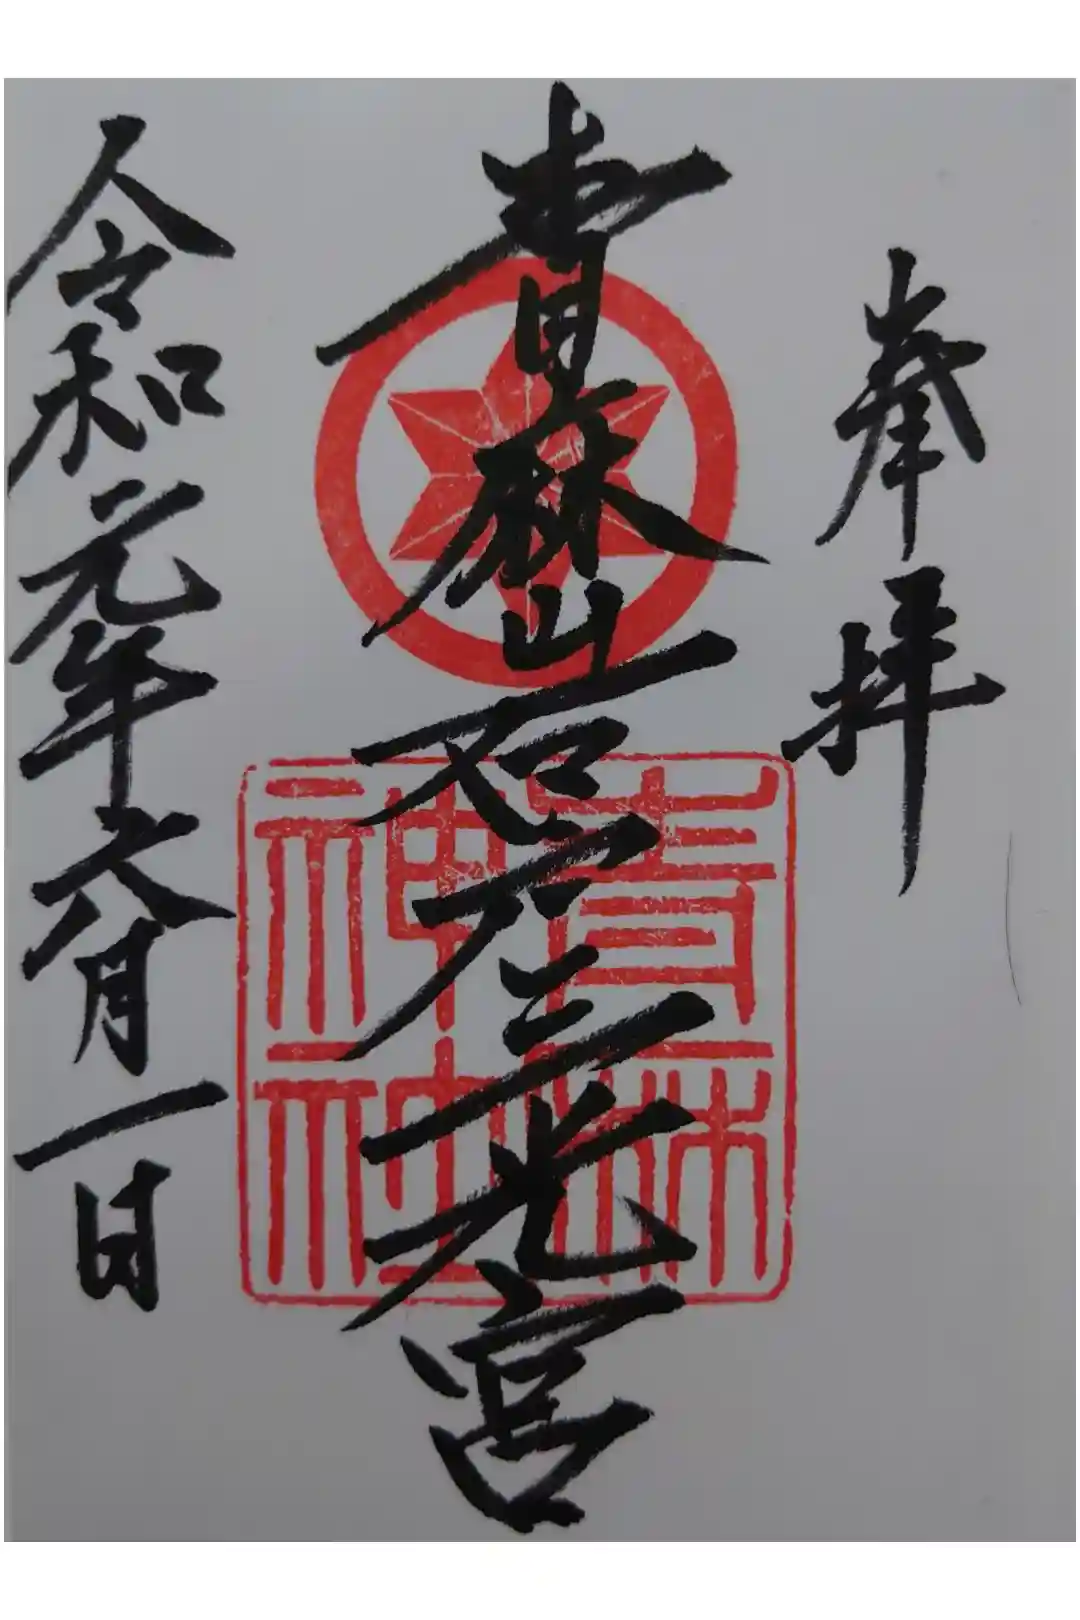 奉拝
青麻岩戸三光宮
青麻
神社
令和元年六月一日